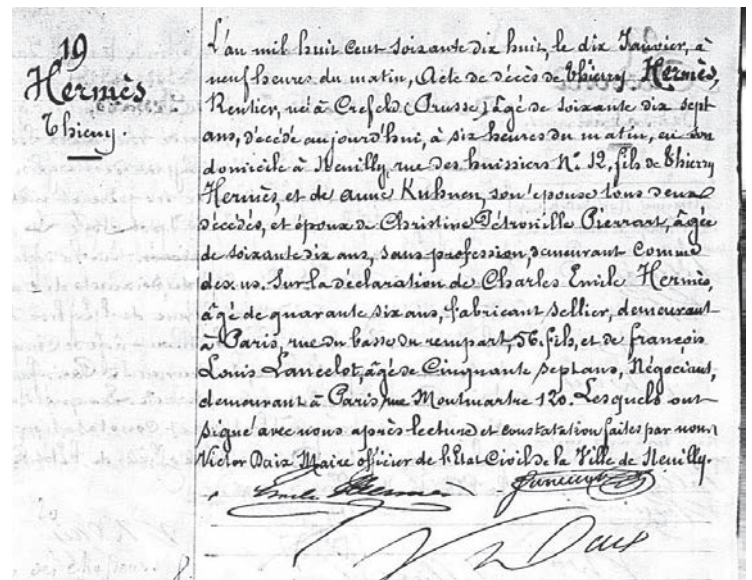 19
Hermès
Thierry.
L'an mil huit Cent soixante dix huit, le dix Janvier, à
neuf heures du matin, Acte de décès de Thierry Hermès,
Rentier, né à Crefeld (Prusse) âgé de soixante dix sept
ans, décédé aujourd'hui, à six heures du matin, en son
domicile à Neuilly, rue des huissiers No. 12, fils de Thierry
Hermès, et de Anne Kuhnen, son épouse tous deux
décédés, et époux de Christine Pétronille Pierrart, âgée
de soixante dix ans, sans profession, demeurant Comme
dessus. Sur la déclaration de Charles Emile Hermès,
âgé de quarante six ans, fabricant Sellier, demeurant
à Paris, rue du basse du rempart, 56, fils, et de françois
Louis Lancelot, âgé de Cinquante sept ans, Négociant,
demeurant à Paris, rue Montmartre 120. Lesquels ont
signé avec nous après lecture et constatation faites par nous
Victor Daix Maire officier de l'Etat Civil de la Ville de Neuilly.
Emile Hermès
V Daix